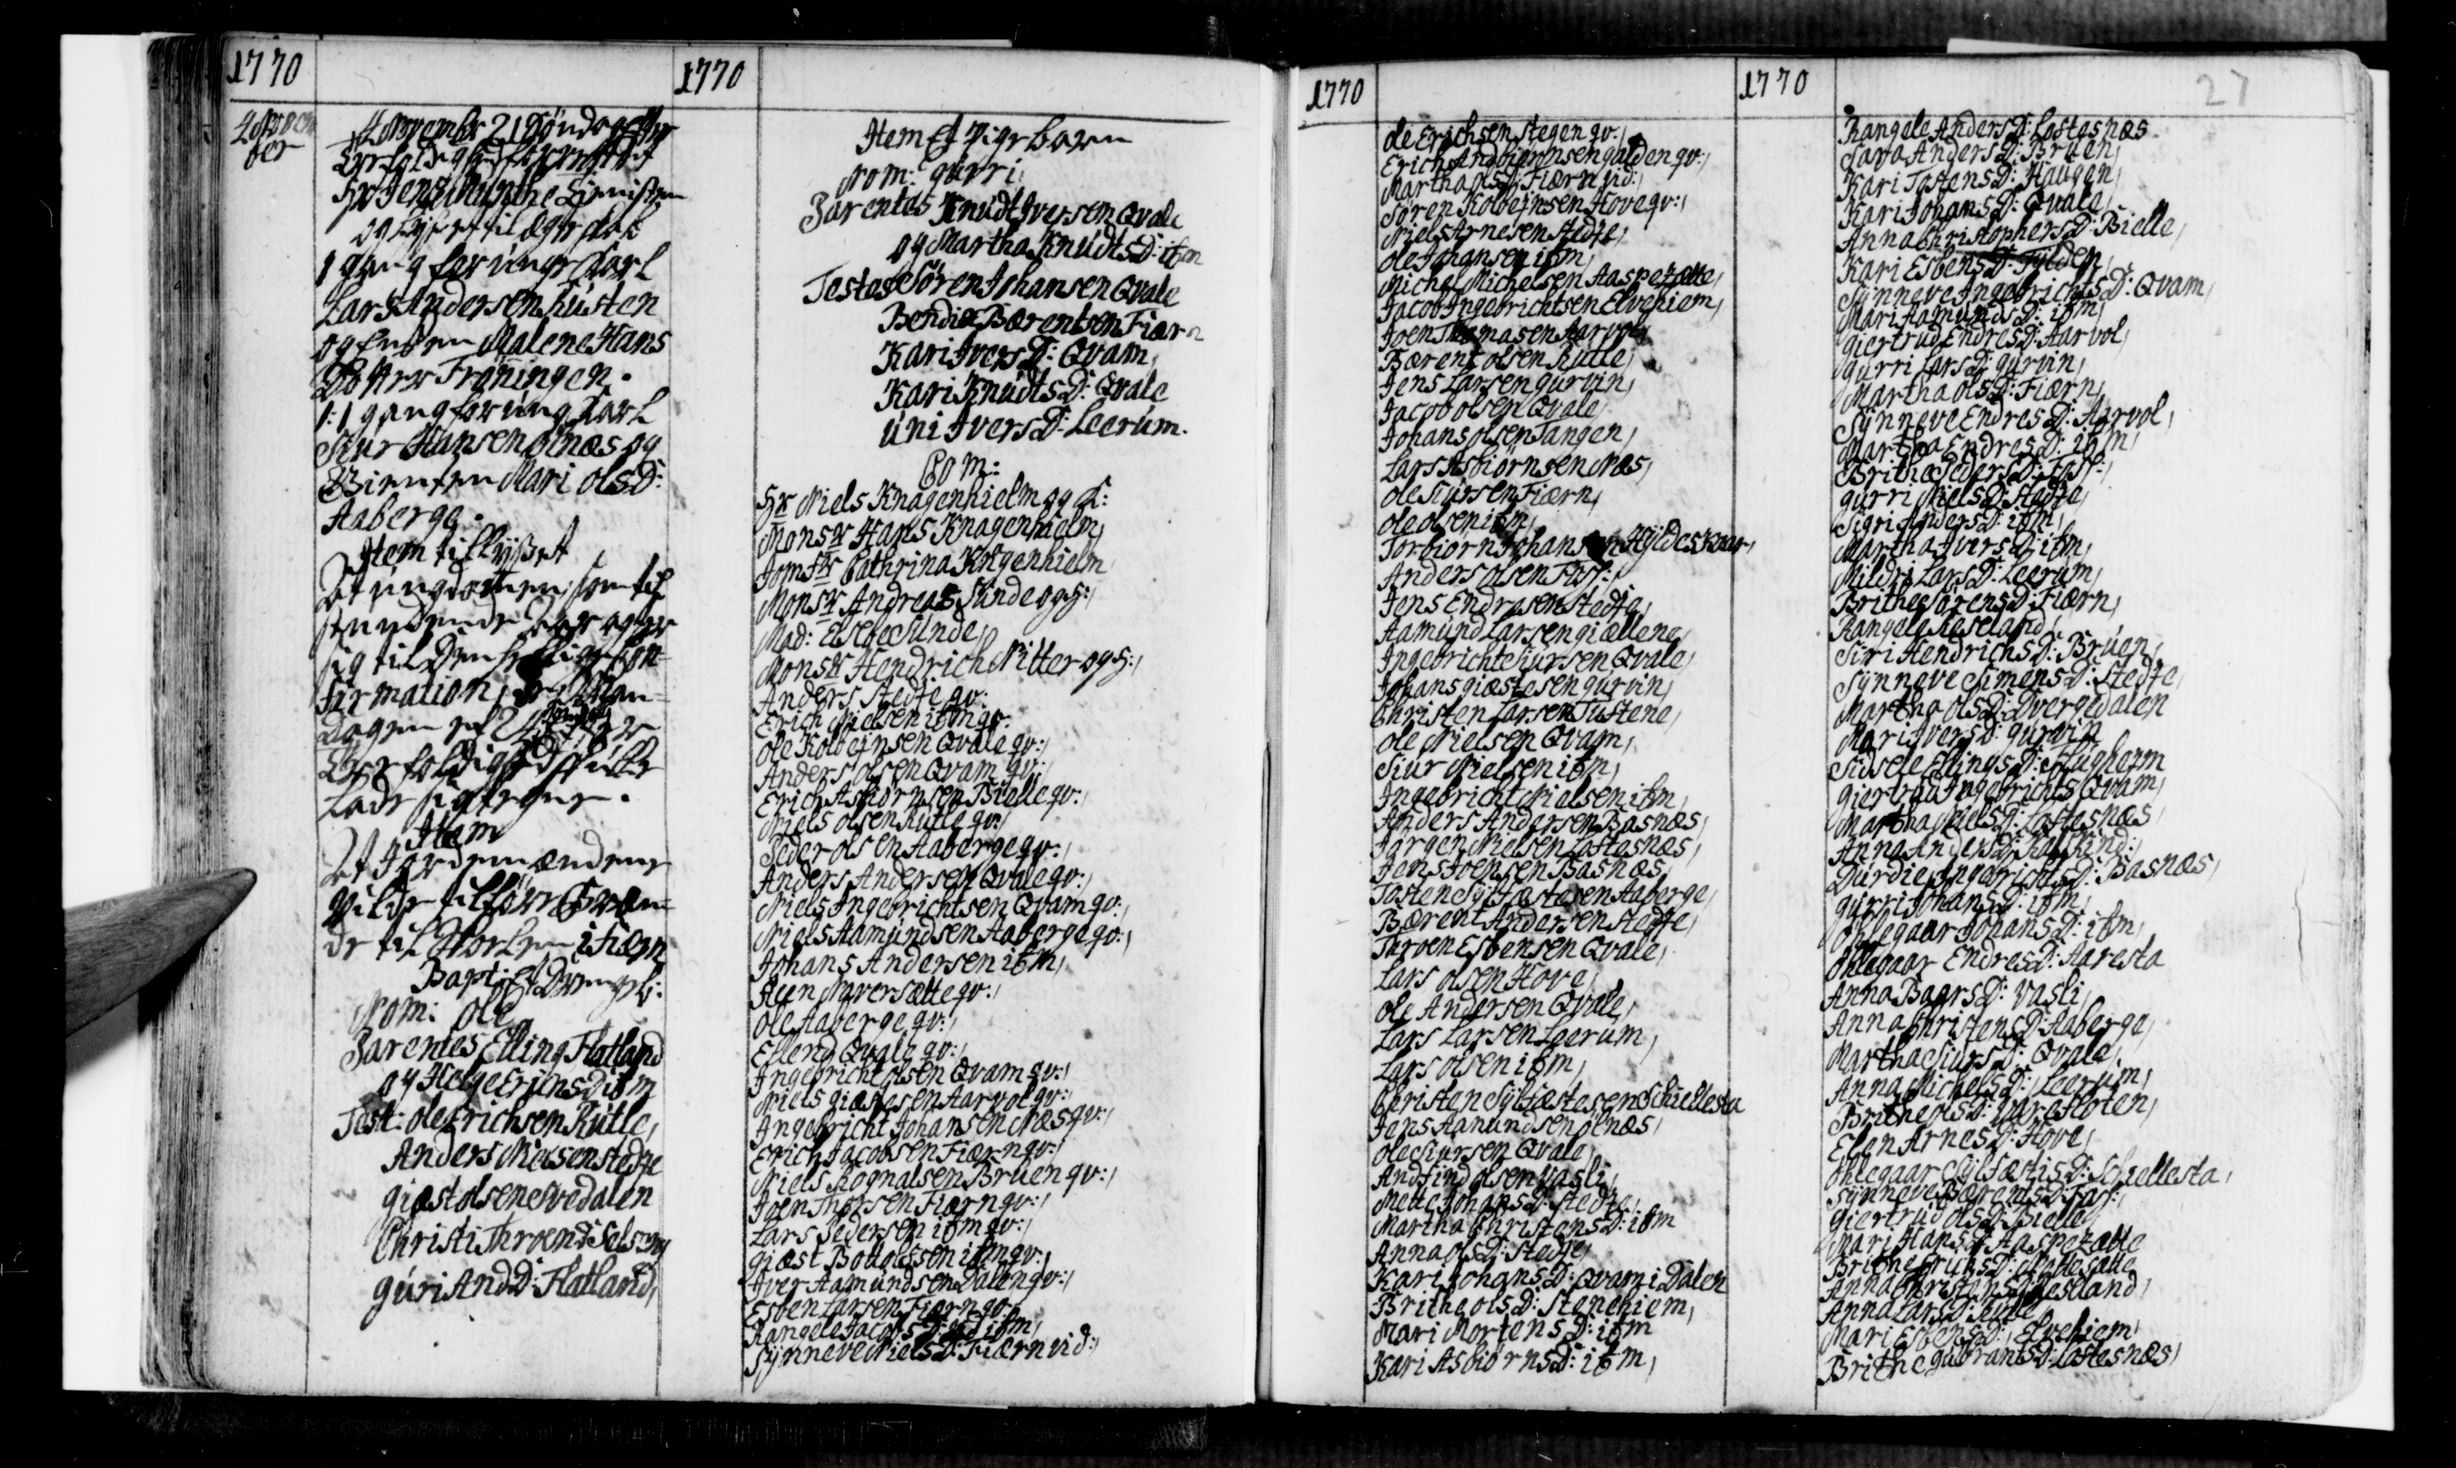 1770
4 Novem
ber
4 November 21 Søndag efter
Hr Jens Munthe
og til ægteskab
1 gang for unge Karl
Lars Andersen Rusten
og Malene Hans
Dotter Frøningen.
1: 1 gang for ung Karl
Siur Hansen Ølnæs og
Pigen Mari Ols D:
Aaberge.
Item tillyßet
At ungdommen som til
sig til Con-
firmation, Man-
dagen
lade sig
Item
At
til Kirken i Fiærn
Bapt:
Nom: Ole
Parentes Elling Flatland
og Helge Erichs D: ibm
Test: Ole Erichsen Rutle,
Anders Nielsen Stedje
Giæst Olsen Svedalen
Christi Throends D:
Guri And: D: Flatland,
1770
Item Et Pigebarn
Nom: Gurri
Parentes Knudt Iversen Qvale
og Martha Knudts D: ibm
Testes Søren Johansen Qvale
Bendix Bærentsen Fiærn
Kari Ivers D: Qvam,
Kari Knudts D: Qvale
Uni Ivers D: Leerum.
Com:
Hr Niels Knagenhielm og K:
Monsr Hans Knagenhielm,
Jomfr Cathrina Knagenhielm
Monsr Andreas Sunde og H:,
Mad: Elsebe Sunde,
Monsr Hendrich Nitter og H:,
Anders Stedje qv:
Erich Nielsen ibm qv:
Ole Kolbeinsen Qvale qv:,
Anders Olsen Qvam qv:,
Erich Asbiørnsen Bielle qv:,
Niels Olsen Rutle qv:,
Peder Olsen Aaberge qv:,
Anders Andersen Qvale qv:,
Niels Ingebrichtsen Qvam qv:,
Niels Aamundsen Aaberge qv:,
Johans Andersen ibm,
Steen Naversætte qv:,
Ole Aaberge qv:,
Ellend Qvale qv:,
Ingebricht Olsen Qvam qv:,
Niels Giæstesen Aarvol qv:,
Ingebricht Johansen Næs qv:,
Erich Jacobsen Fiærn qv:,
Niels Rognalsen Bruen qv:,
Joen Thorsen Fiærn qv:,
Lars Pedersen ibm qv:,
Giæst Botolfsen ibm qv:,
Iver Aamundsen Dalen qv:,
Esben Larsen Fiærn qv:,
Rangele Jacobs D: ibm,
Synneve Niels D: Fiærn vid:,
1770
Ole Erichsen Stegen qv:,
Erich Andbiørnsen Galden qv:,
Martha Ols D: Fiærn vid:,
Søren Kolbeinsen Hove qv:,
Niels Arnesen Stedje,
Ole Johansen ibm,
Michel Michelsen Aaspesætte,
Jacob Ingebrichtsen Elvehiem,
Joen Thomasen Aarvol,
Bærent Olsen Rutle,
Jens Larsen Gurvin,
Jacob Olsen Qvale,
Johans Olsen Tangen,
Lars Asbiørnsen Næs,
Ole Siursen Fiærn,
Ole Olsen ibm,
Torbiørn Johansen Hyldeskaar,
Anders Olsen Foss:,
Jens Endresen Stedje,
Aamund Larsen Giællene,
Ingebricht Siursen Qvale,
Johans Giæstesen Gurvin,
Christen Larsen Tustene,
Ole Nielsen Qvam,
Siur Nielsen ibm,
Ingebricht Nielsen ibm,
Anders Andersen Basnæs,
Jørgen Nielsen Loftesnæs,
Jens Joensen Basnæs,
Tosten Sylfæstesen Aaberge,
Bærent Andersen Stedje,
Throen Esbensen Qvale,
Lars Olsen Hove,
Ole Andersen Qvale,
Lars Larsen Leerum,
Lars Olsen ibm,
Christen Sylfæstesen Schiellesta
Jens Aamundsen Ølnæs,
Ole Siursen Qvale,
Andfind Olsen Vasli,
Mette Johans D: Stedje,
Martha Christens D: ibm
Anna Ols D: Stedje,
Kari Johans D: Qvam i Dalen
Brithe Ols D: Stenehiem,
Mari Mortens D: ibm
Kari Asbiørns D: ibm,
1770
27
Rangele Anders D: Loftesnæs
Sara Anders D: Bruen,
Kari Tostens D: Haugen,
Kari Johans D: Qvale,
Anna Christophers D: Bielle,
Kari Esbens D: Fylden,
Synneve Ingebrichts D: Qvam,
Mari Aamunds D: ibm,
Giertrud Endres D: Aarvol,
Gurri Lars D: Gurvin,
Martha Ols D: Fiærn,
Synneve Endres D: Aarvol,
Martha Endres D: ibm,
Brithe Peders D: Foss:,
Gurri Niels D: Stedje,
Sigri Anders D: ibm,
Martha Ivers D: ibm,
Mildri Lars D: Leerum,
Brithe Sørens D: Fiærn,
Rangele Keseland,
Siri Hendrichs D: Bruen,
Synneve Simens D: Stedje,
Martha Ols D: Dvergedalen
Mari Ivers D: Gurvin
Sidsele Ellings D: Flugheim
Giertrud Ingebrichts Qvam,
Martha Niels D: Loftesnæs,
Anna Anders D:
Durdie Ingebrichts D: Basnæs,
Gurri Johans D: ibm,
Ohlegaar Johans D: ibm,
Ohlegaar Endres D: Aaresta
Anna Baars D: Vasli,
Anna Christens D: Aaberge,
Martha Siurs D: Qvale,
Anna Michels D: Leerum,
Brithe Ols D:
Elen Arnes D: Hove,
Ohlegaar Sylfæstis D: Schiellesta,
Synneve Bærents D: Foss:,
Giertrud Ols D: Bielle
Mari Hans D: Aaspesætte
Brithe Erichs D:
Anna Christens D: Kiesland,
Anna Lars D: Rutle
Mari Esbens D: Elvehiem,
Brithe Gulbrants D: Loftesnæs,